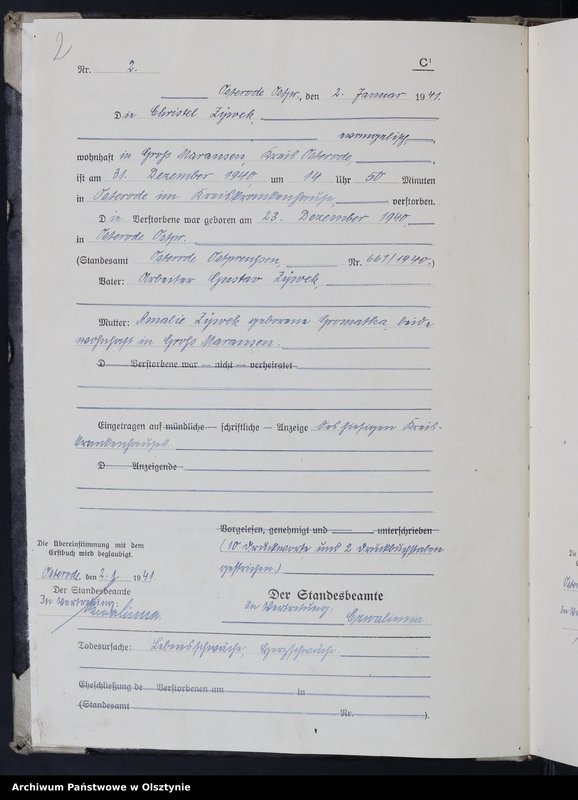 2
Nr. 2. C¹
Osterode Ostpr., den 2. Januar 1941.
Die Christel Zywek,
evangelisch,
wohnhaft in Groß Maransen, Kreis Osterode,
ist am 31. Dezember 1940, um 14 Uhr 50 Minuten
in Osterode im Kreiskrankenhause, verstorben.
Die Verstorbene war geboren am 23. Dezember 1940,
in Osterode Ostpr.
(Standesamt Osterode Ostpreußen, Nr. 661/1940.)
Vater: Arbeiter Gustav Zywek,
Mutter: Amalie Zywek geborene Gromatka, beide
wohnhaft in Groß Maransen.
D Verstorbene war — nicht — verheiratet
Eingetragen auf mündliche — schriftliche — Anzeige des hiesigen Kreis-
krankenhauses
D Anzeigende
Vorgelesen, genehmigt und unterschrieben
(10 Druckworte und 2 Druckbuchstaben
gestrichen.)
Die Übereinstimmung mit dem
Erstbuch wird beglaubigt.
Osterode, den 2. 1. 1941.
Der Standesbeamte
In Vertretung:
Czwalinna.
Der Standesbeamte
In Vertretung:
Czwalinna
Todesursache: Lebensschwäche, Herzschwäche
Eheschließung de Verstorbenen am in
(Standesamt Nr. ).
Archiwum Państwowe w Olsztynie